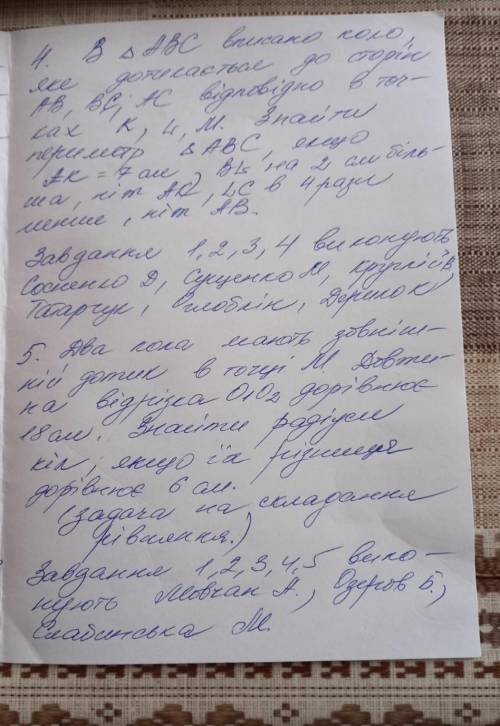 4. В △ АВС вписано коло,
яке дотикається до сторін
АВ, ВС, АС відповідно в точ-
ках К, L, М. Знайти
периметр △ АВС, якщо
АК = 7 см, BL на 2 см біль-
ша, ніж АК, LC в 4 рази
менше, ніж АВ.
Завдання 1, 2, 3, 4 виконують
Д, Сущенко М, Круглій В,
Татарчук, Глобкін,
5. Два кола мають зовніш-
ній дотик в точці М. Довжи-
на відрізка О1О2 дорівнює
18 см. Знайти радіуси
кіл, якщо їх різниця
дорівнює 6 см.
(задача на складання
рівняння.)
Завдання 1, 2, 3, 4, 5 вико-
нують Мовчан А., Озеров Б.,
Слабинська М.